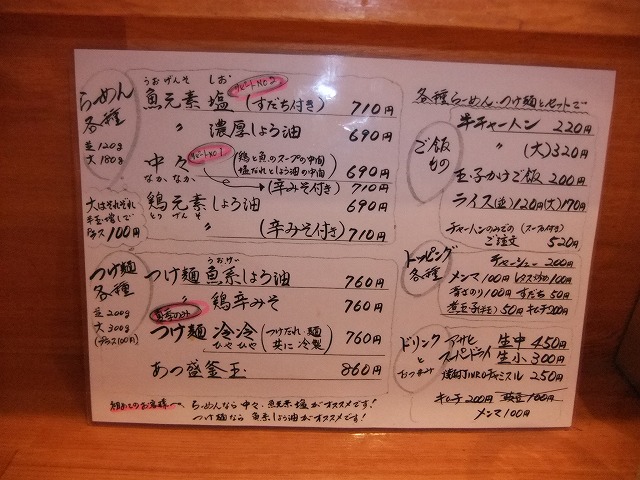 らーめん
各種
並120g
大180g
大はそれぞれ
プラス100円
うおげんそ しお
リピートNO2
魚元素 塩 (すだち付き) 710円
〃 濃厚しょう油 690円
リピートNO1
中々 (鶏と魚のスープの中間 塩だれとしょう油の中間) 690円
なかなか
(辛みそ付き) 710円
鶏元素しょう油 690円
とりげんそ
(辛みそ付き) 710円
つけ麺
各種
並200g
大300g
(プラス100円)
うおけい
つけ麺 魚系しょう油 760円
〃 鶏辛みそ 760円
夏季のみ
つけ麺 冷冷 (つけだれ・麺 共に冷製) 760円
ひやひや
あつ盛釜玉 860円
初めてのお客様へ らーめんなら 中々、魚元素 塩がオススメです!
つけ麺なら 魚系しょう油がオススメです!
各種らーめん・つけ麺とセットで
ご飯
もの
牛チャートン 220円
〃 (大)320円
玉子かけご飯 200円
ライス(並)120円(大)170円
チャートンのみでの (スープ付き)
ご注文 520円
トッピング
各種
チャーシュー 200円
メンマ 100円 100円
青さのり 100円 すだち 50円
煮玉子(半) 50円 キムチ 200円
ドリンク
と
おつまみ
アサヒ
スーパードライ
生中 450円
生小 300円
250円
キムチ 200円 枝豆 100円
メンマ 100円